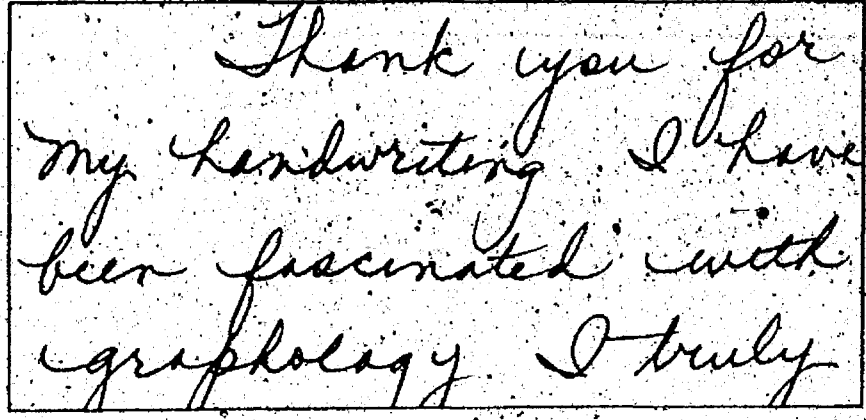 Thank you for
my handwriting. I have
been fascinated with
graphology. I truly